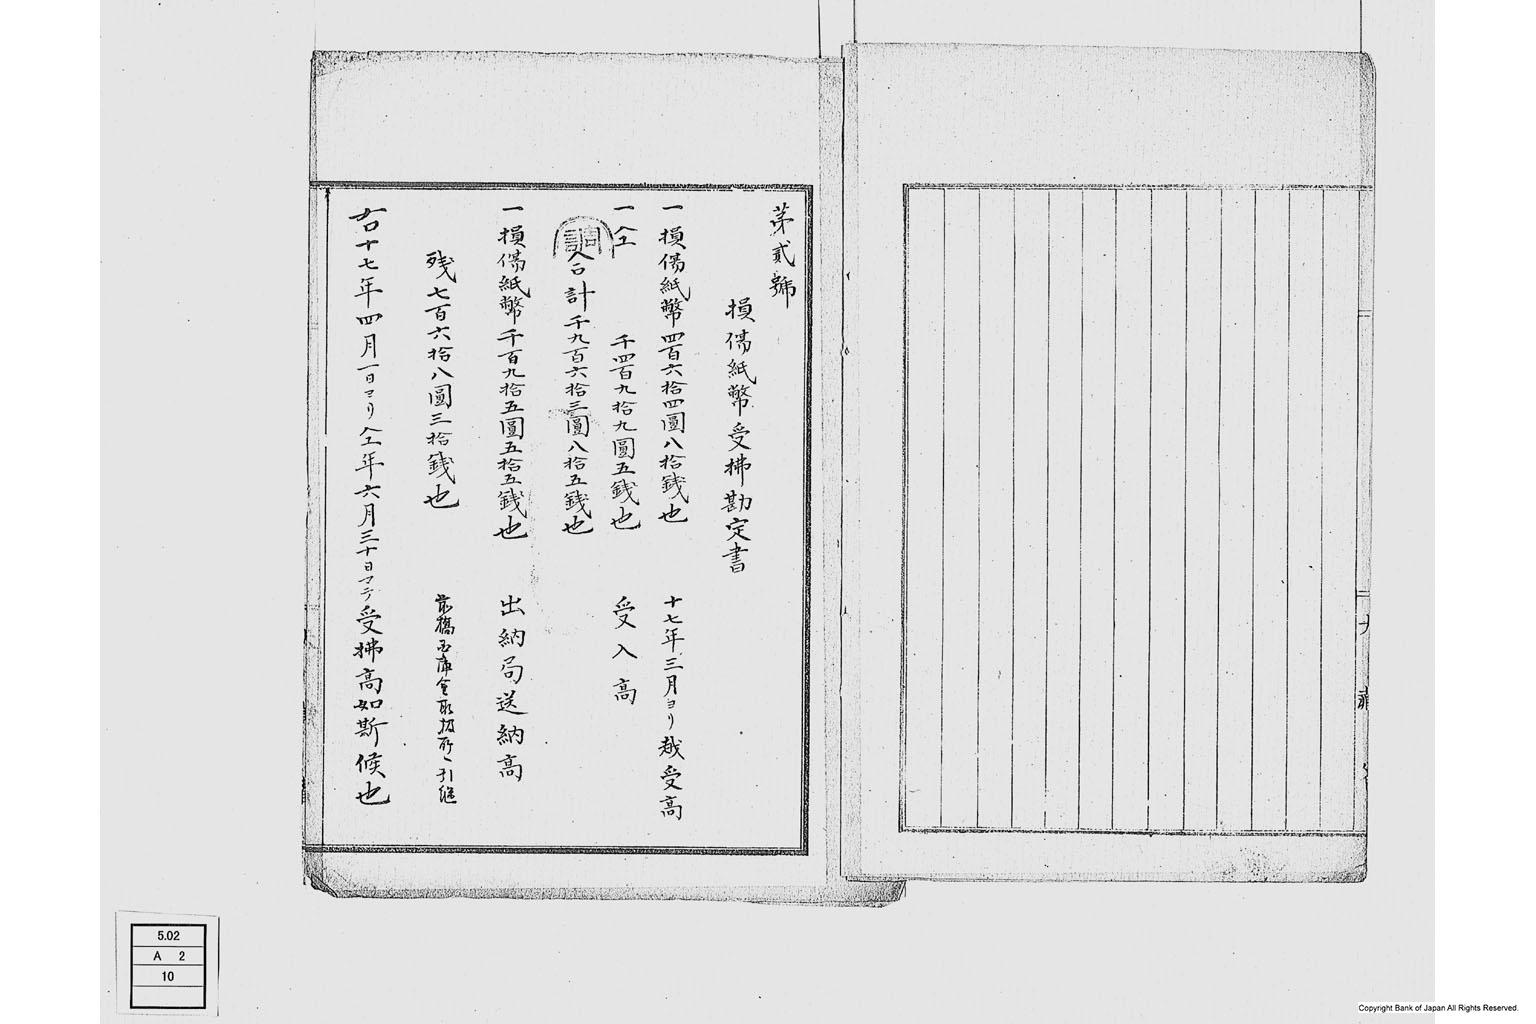 第貳號
損傷紙幣受拂勘定書
一損傷紙幣四百六拾四圓八拾銭也 十七年三月ヨリ越受高
一仝 千四百九拾九圓五銭也 受入高
合計千九百六拾三圓八拾五銭也
一損傷紙幣千百九拾五圓五拾五銭也 出納局送納高
残七百六拾八圓三拾銭也 前橋金庫
右十七年四月一日ヨリ仝年六月三十日マテ受拂高如斯候也
5.02
A 2
10
Copyright Bank of Japan All Rights Reserved.